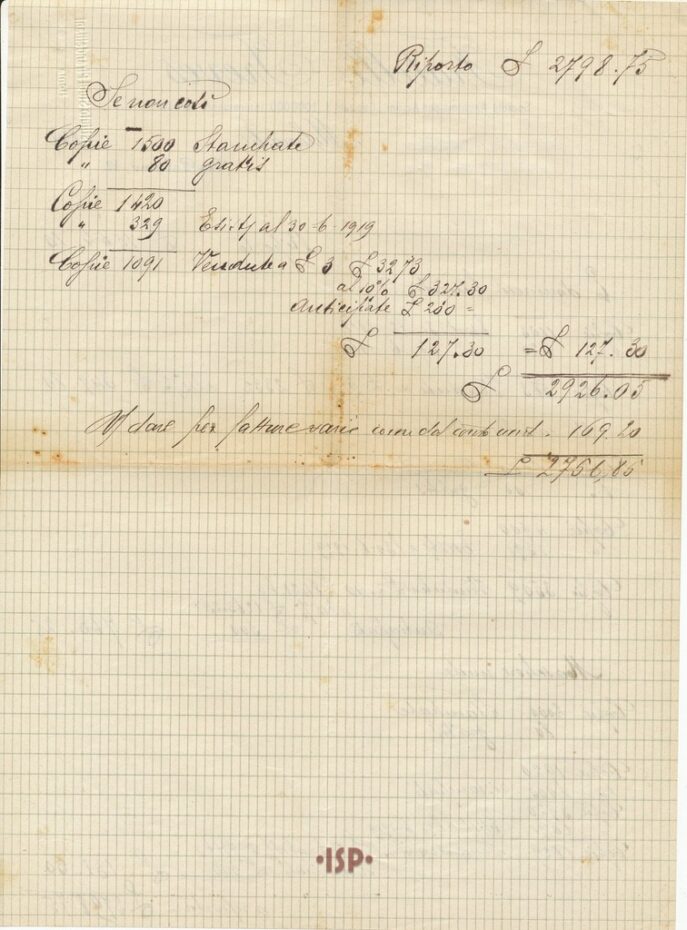 Riporto £ 2798.75
Se non così
Copie 1500 Stampate
" 80 gratis
Copie 1420
" 329 Esist al 30-6-1919
Copie 1091 Vendute a £ 3 £ 3273
al 10% £ 327.30
anticipate £ 200 =
£ 127.30 = £ 127.30
£ 2926.05
dare per fatture varie 169.20
£ 2756,85
·ISP·